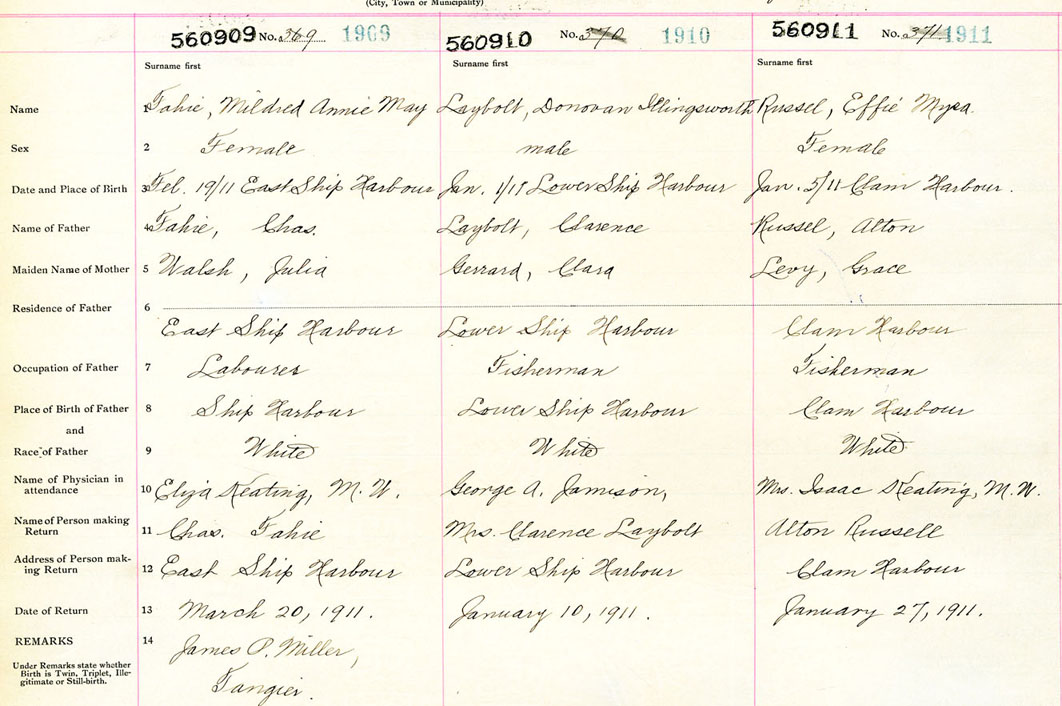 (City, Town or Municipality)
560909 No. 369 1909 560910 No. 370 1910 560911 No. 371 1911
Surname first Surname first Surname first
Name 1 Fahie, Mildred Annie May Laybolt, Donovan Illingsworth Russel, Effie Myra.
Sex 2 Female male Female
Date and Place of Birth 3 Feb. 19/11 East Ship Harbour Jan. 1/11 Lower Ship Harbour Jan. 5/11 Clam Harbour.
Name of Father 4 Fahie, Chas. Laybolt, Clarence Russel, Alton
Maiden Name of Mother 5 Walsh, Julia Gerrard, Clara Levy, Grace
Residence of Father 6
East Ship Harbour Lower Ship Harbour Clam Harbour
Occupation of Father 7 Labourer Fisherman Fisherman
Place of Birth of Father 8 Ship Harbour Lower Ship Harbour Clam Harbour
and
Race of Father 9 White White White
Name of Physician in
attendance 10 Eliza Keating, M. W. George A. Jamison, Mrs. Isaac Keating, M. W.
Name of Person making
Return 11 Chas. Fahie Mrs. Clarence Laybolt Alton Russell
Address of Person mak-
ing Return 12 East Ship Harbour Lower Ship Harbour Clam Harbour
Date of Return 13 March 20, 1911. January 10, 1911. January 27, 1911.
REMARKS 14 James P. Miller,
Under Remarks state whether
Birth is Twin, Triplet, Ille-
gitimate or Still-birth.
Tangier.